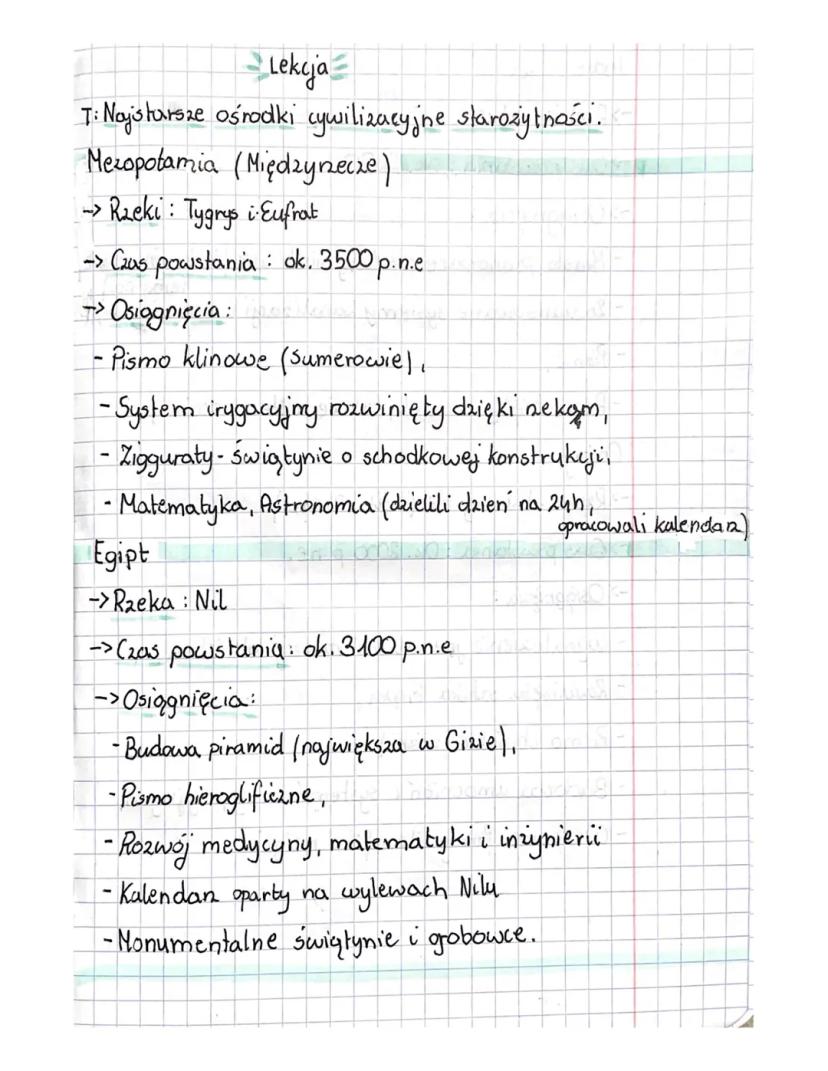 Lekcja
T: Najstarsze ośrodki cywilizacyjne starożytności.
Mezopotamia (Międzyrzecze)
-> Rzeki : Tygrys i Eufrat
-> Czas powstania : ok. 3500 p.n.e
-> Osiągnięcia :
- Pismo klinowe (Sumerowie),
- System irygacyjny rozwinięty dzięki rzekom,
- Zigguraty - świątynie o schodkowej konstrukcji,
- Matematyka, Astronomia (dzielili dzień na 24h,
opracowali kalendarz)
Egipt
-> Rzeka : Nil
-> Czas powstania : ok. 3100 p.n.e
-> Osiągnięcia :
- Budowa piramid (największa w Gizie),
- Pismo hieroglificzne,
- Rozwój medycyny, matematyki i inżynierii
- Kalendarz oparty na wylewach Nilu
- Monumentalne świątynie i grobowce.